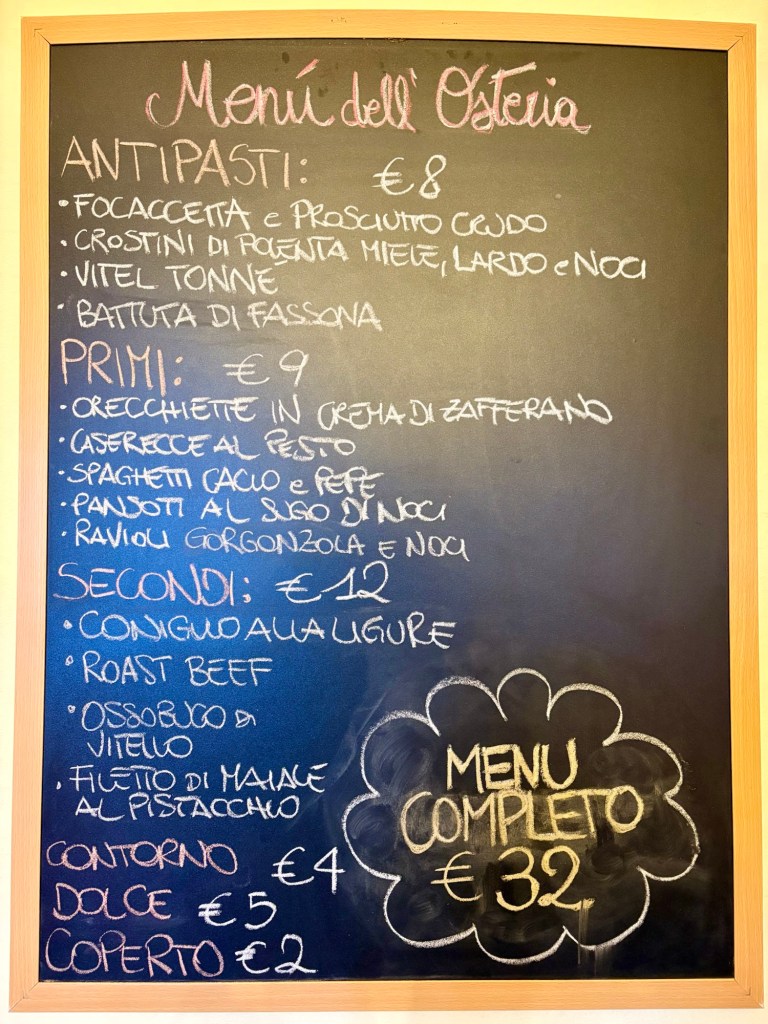 Menú dell'Osteria
ANTIPASTI: €8
• FOCACCETTA e PROSCIUTTO CRUDO
• CROSTINI DI POLENTA MIELE, LARDO e NOCI
• VITEL TONNÉ
• BATTUTA DI FASSONA
PRIMI: €9
• ORECCHIETTE IN CREMA DI ZAFFERANO
• CASERECCE AL PESTO
• SPAGHETTI CACIO e PEPE
• PANSOTI AL SUGO DI NOCI
• RAVIOLI GORGONZOLA E NOCI
SECONDI: €12
• CONIGLIO ALLA LIGURE
• ROAST BEEF
• OSSOBUCO DI
VITELLO
• FILETTO DI MAIALE
AL PISTACCHIO
CONTORNO €4
DOLCE €5
COPERTO €2
MENU
COMPLETO
€32